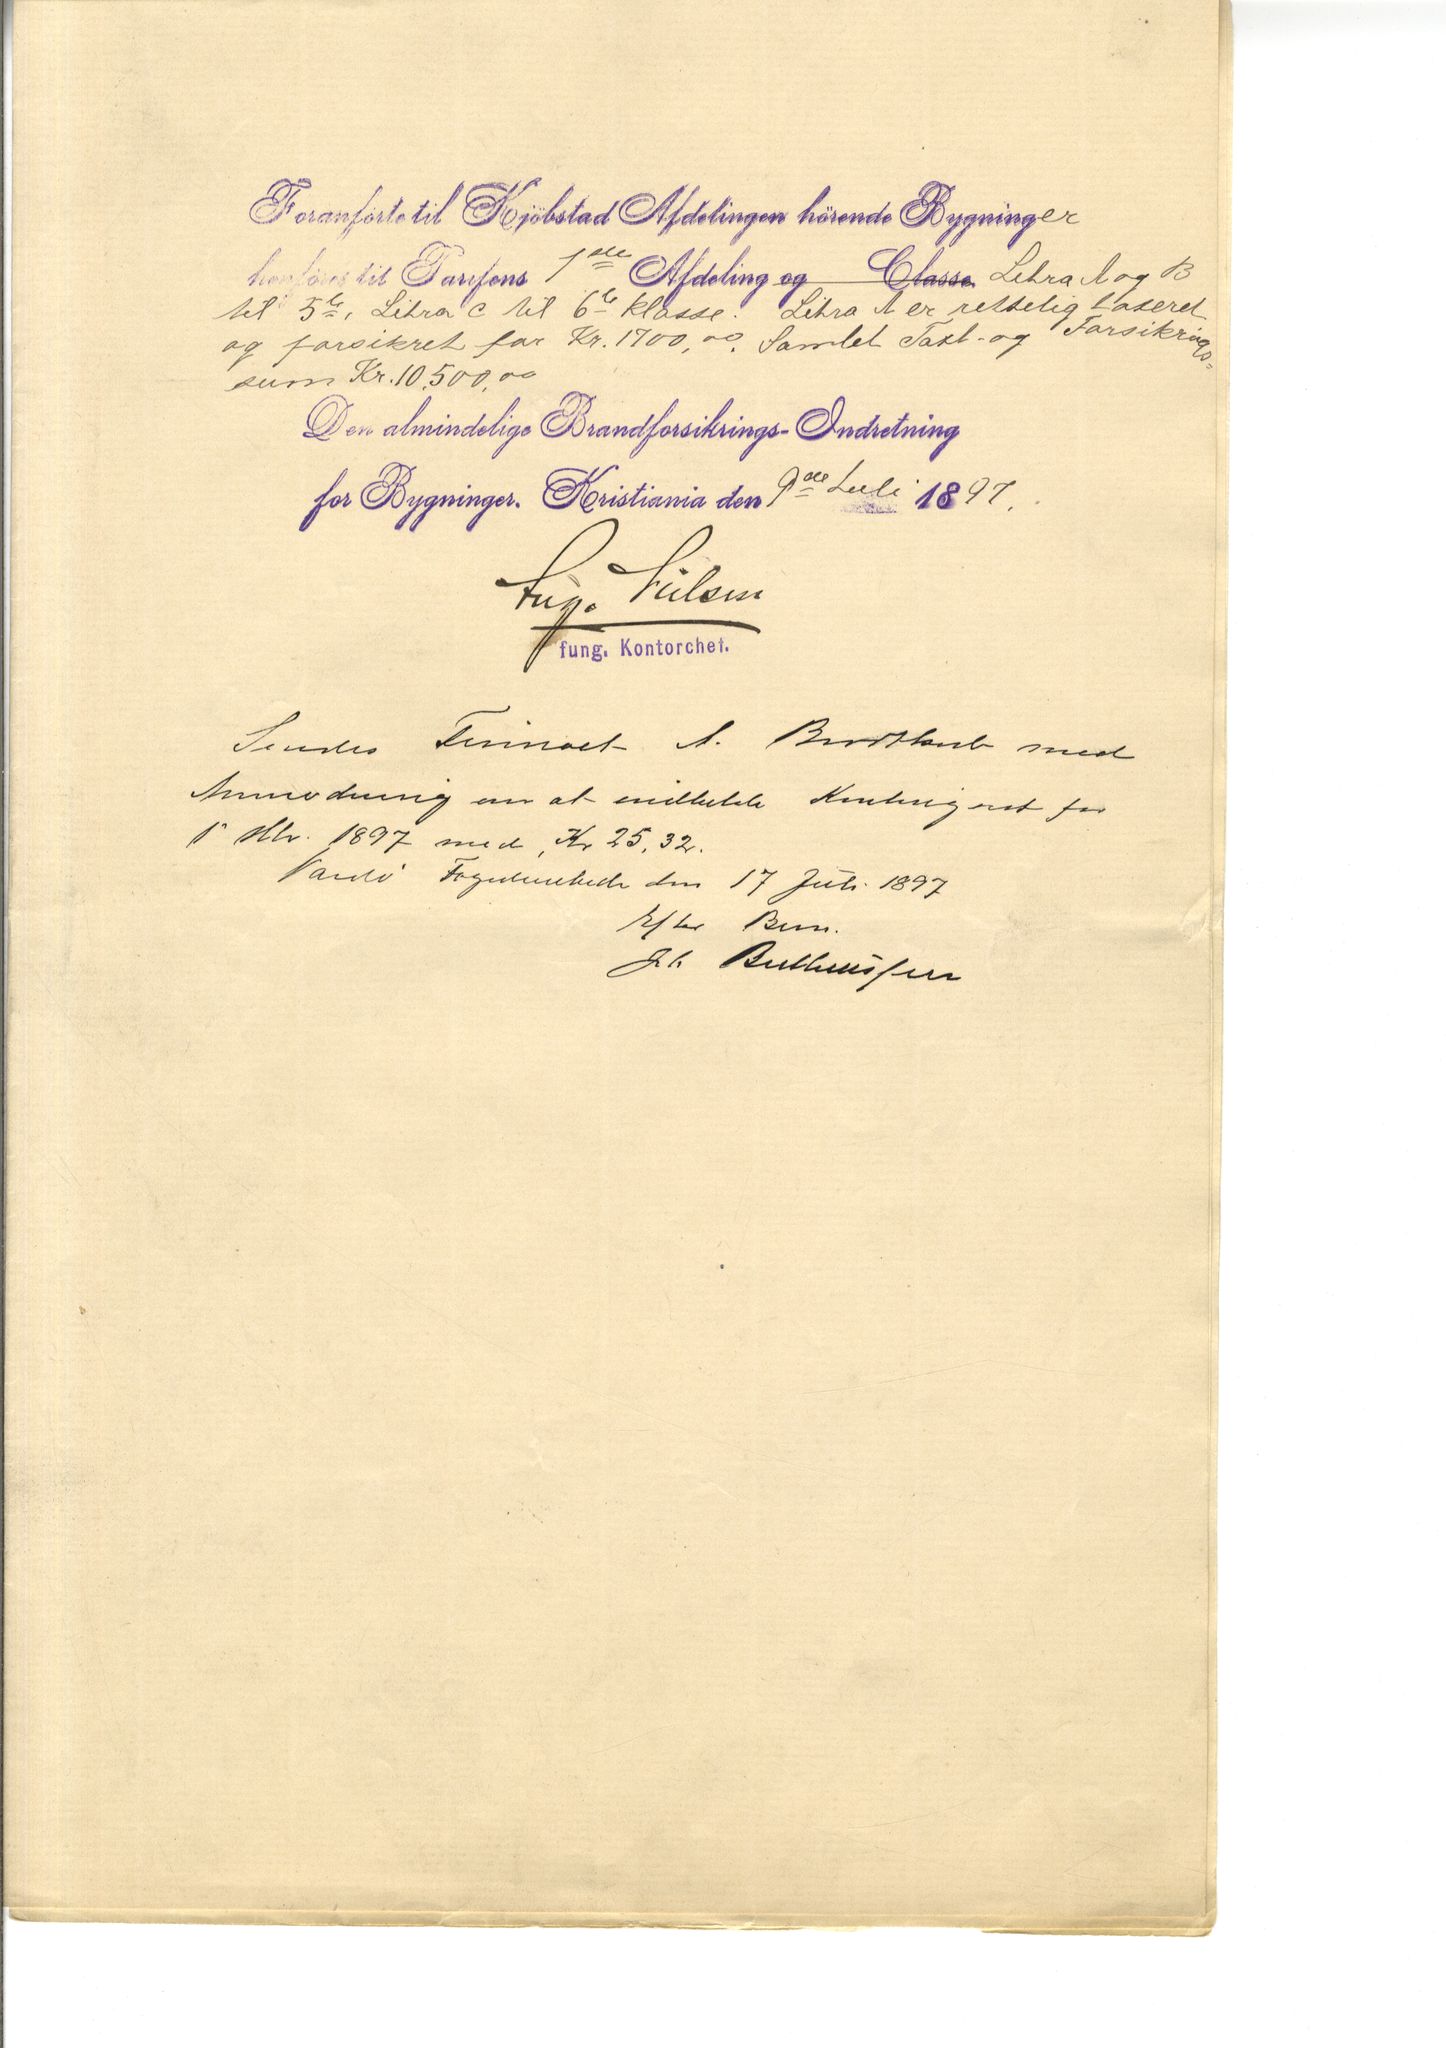 Foranførte til Kjöbstad Afdelingen hörende Bygninger
henföres til Tarifens 1ste Afdeling og Classe Litra A og B
til 5te, Litra C til 6te Klasse. Litra A er rettelig taxeret
og forsikret for Kr. 1700,00. Samlet Taxt- og Forsikrings-
sum Kr. 10,500,00
Den almindelige Brandforsikrings-Indretning
for Bygninger. Kristiania den 9de Juli 1897.
Aug. Nielsen
fung. Kontorchef.
Sendes A. med
Anmodning om at indbetale Kontingent for
1ste Hlv. 1897 med Kr 25,32.
Vardö den 17 Juli 1897
Efter Bem.